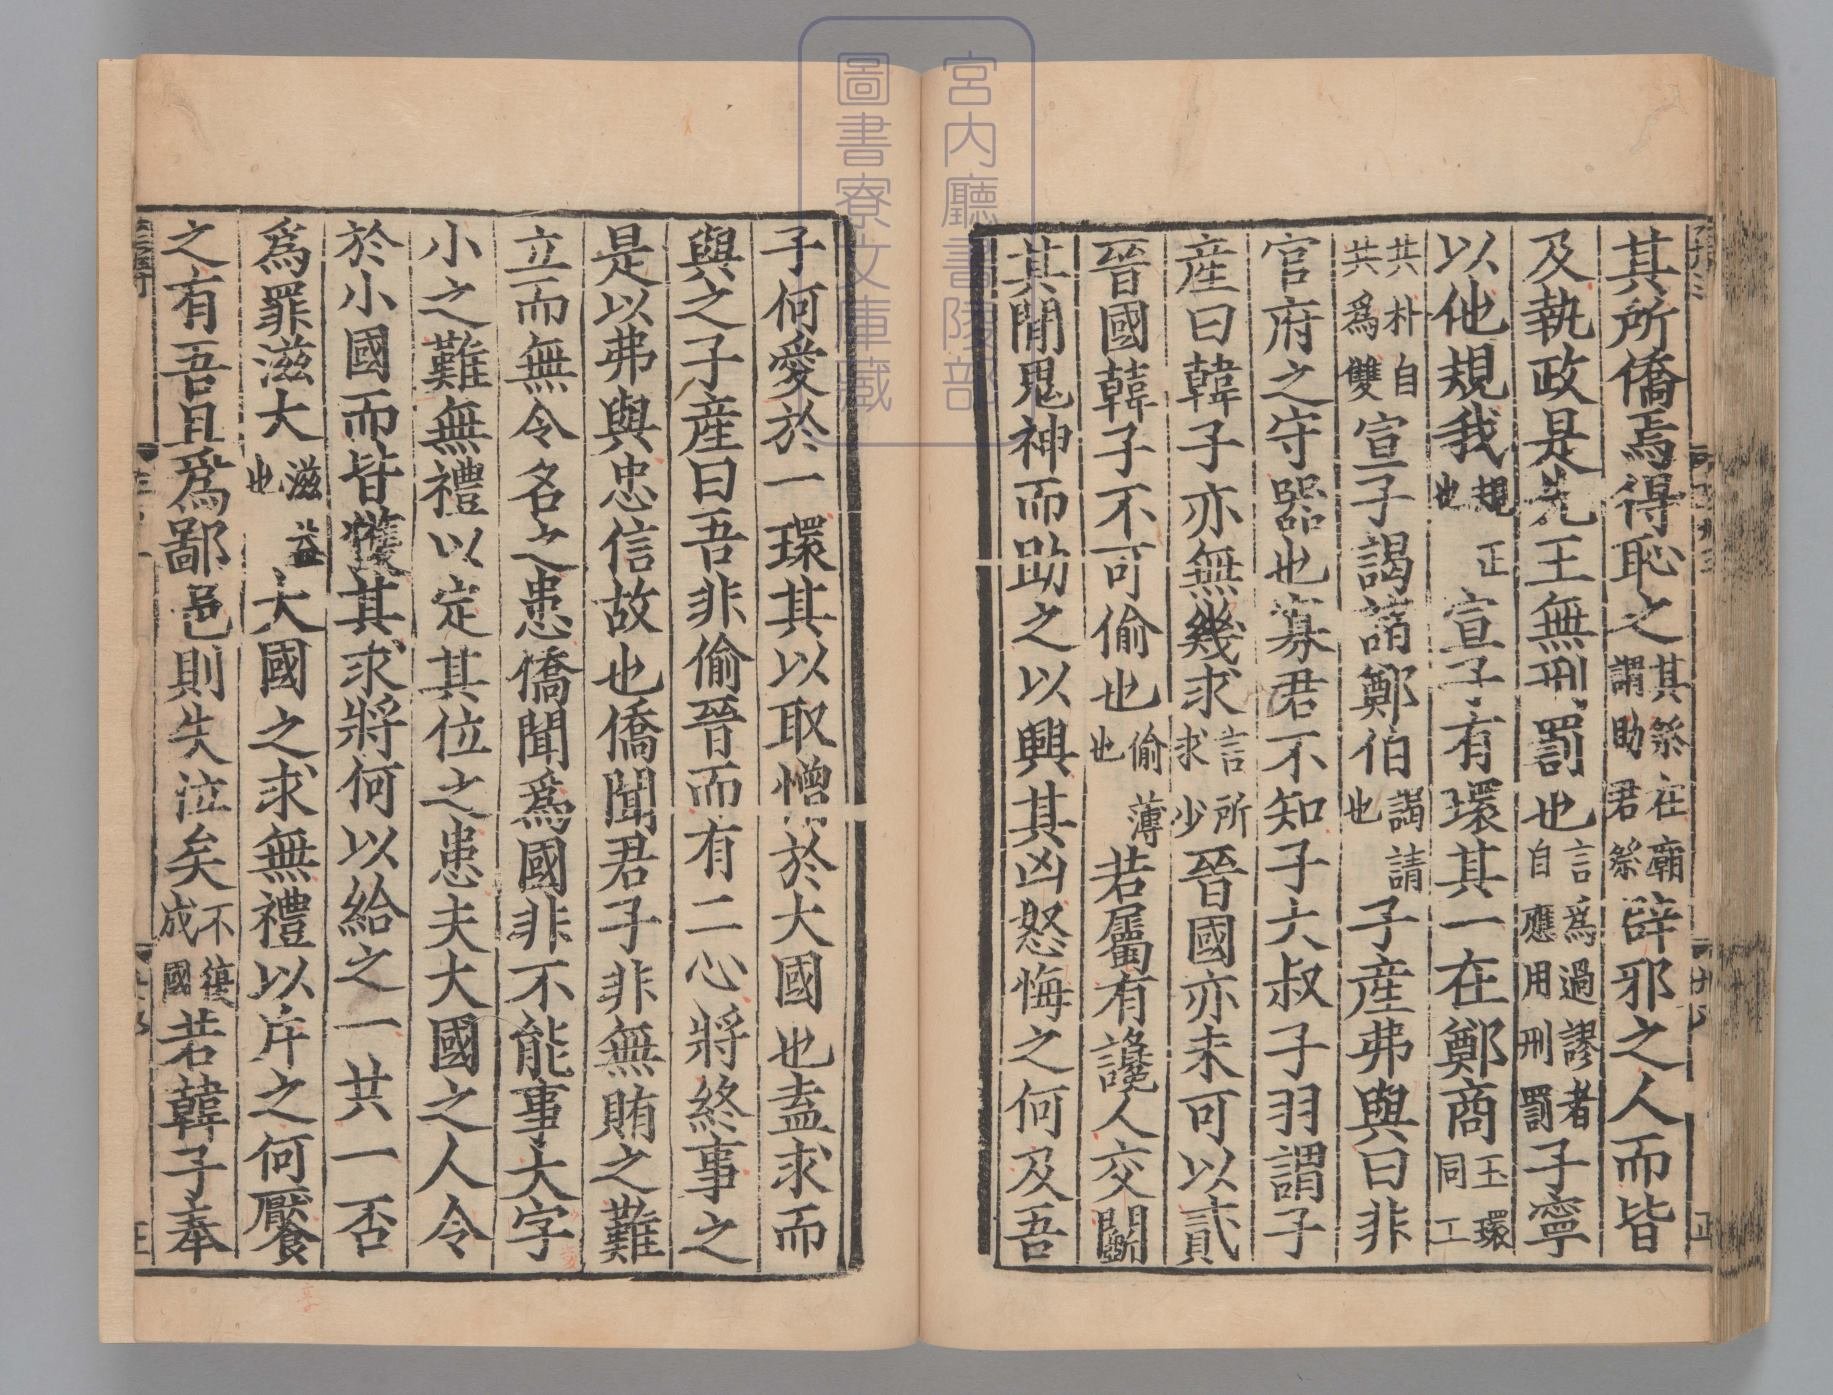 其所僑焉得恥之其祭在廟謂助君祭辟邪之人而皆
及執政是先王無刑罰也言爲過謬者自應用刑罰子寧
以他規我規正也宣子有環其一在鄭商玉環同工
共朴自共爲雙宣子謁諸鄭伯謁請也子産弗與曰非
官府之守器也寡君不知子大叔子羽謂子
産曰韓子亦無幾求言所求少晉國亦未可以貳
晉國韓子不可偷也偷薄也若屬有讒人交鬭
其閒鬼神而助之以興其凶怒悔之何及吾
子何愛於一環其以取憎於大國也盍求而
與之子産曰吾非偷晉而有二心將終事之
是以弗與忠信故也僑聞君子非無賄之難
立而無令名之患僑聞爲國非不能事大字
小之難無禮以定其位之患夫大國之人令
於小國而皆獲其求將何以給之一共一否
爲罪滋大滋益也大國之求無禮以斥之何饜
之有吾且爲鄙邑則失位矣不復成國若韓子奉
宮内廳書陵部
圖書寮文庫藏